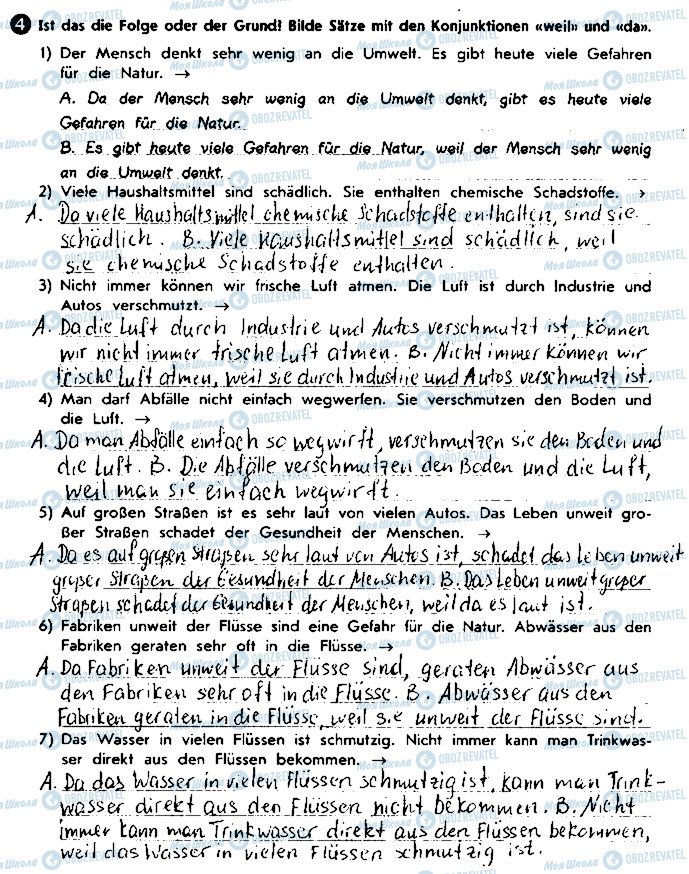 4 Ist das die Folge oder der Grund? Bilde Sätze mit den Konjunktionen «weil» und «da».
1) Der Mensch denkt sehr wenig an die Umwelt. Es gibt heute viele Gefahren
für die Natur. →
A. Da der Mensch sehr wenig an die Umwelt denkt, gibt es heute viele
Gefahren für die Natur.
B. Es gibt heute viele Gefahren für die Natur, weil der Mensch sehr wenig
an die Umwelt denkt.
2) Viele Haushaltsmittel sind schädlich. Sie enthalten chemische Schadstoffe. →
A. Da viele Haushaltsmittel chemische Schadstoffe enthalten, sind sie
schädlich. B. Viele Haushaltsmittel sind schädlich, weil
sie chemische Schadstoffe enthalten.
3) Nicht immer können wir frische Luft atmen. Die Luft ist durch Industrie und
Autos verschmutzt. →
A. Da die Luft durch Industrie und Autos verschmutzt ist, können
wir nicht immer frische Luft atmen. B. Nicht immer können wir
frische Luft atmen, weil sie durch Industrie und Autos verschmutzt ist.
4) Man darf Abfälle nicht einfach wegwerfen. Sie verschmutzen den Boden und
die Luft. →
A. Da man Abfälle einfach so wegwirft, verschmutzen sie den Boden und
die Luft. B. Die Abfälle verschmutzen den Boden und die Luft,
weil man sie einfach wegwirft.
5) Auf großen Straßen ist es sehr laut von vielen Autos. Das Leben unweit gro-
ßer Straßen schadet der Gesundheit der Menschen. →
A. Da es auf großen Straßen sehr laut von Autos ist, schadet das Leben unweit
großer Straßen der Gesundheit der Menschen. B. Das Leben unweit großer
Straßen schadet der Gesundheit der Menschen, weil da es laut ist.
6) Fabriken unweit der Flüsse sind eine Gefahr für die Natur. Abwässer aus den
Fabriken geraten sehr oft in die Flüsse. →
A. Da Fabriken unweit der Flüsse sind, geraten Abwässer aus
den Fabriken sehr oft in die Flüsse. B. Abwässer aus den
Fabriken geraten in die Flüsse, weil sie unweit der Flüsse sind.
7) Das Wasser in vielen Flüssen ist schmutzig. Nicht immer kann man Trinkwas-
ser direkt aus den Flüssen bekommen. →
A. Da das Wasser in vielen Flüssen schmutzig ist, kann man Trink-
wasser direkt aus den Flüssen nicht bekommen. B. Nicht
immer kann man Trinkwasser direkt aus den Flüssen bekommen,
weil das Wasser in vielen Flüssen schmutzig ist.
Моя Школа OBOZREVATEL